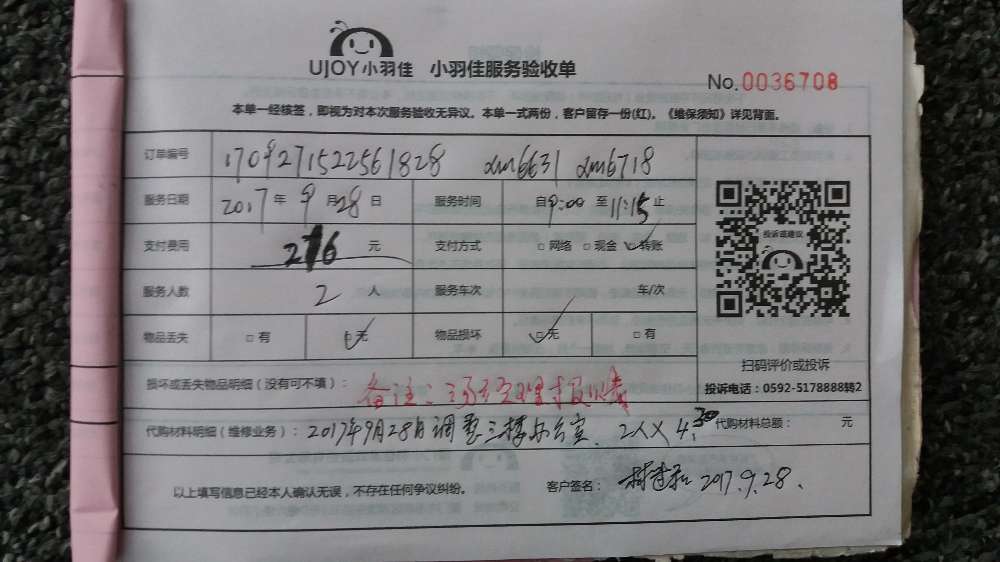 UJOY小羽佳 小羽佳服务验收单
No.0036708
本单一经核签，即视为对本次服务验收无异议。本单一式两份，客户留存一份(红)。《维保须知》详见背面。
订单编号 1709271522561828 xm6631 xm6718
服务日期 2017年9月28日 服务时间 自9:00至11:15止
支付费用 216元 支付方式 □网络 □现金 ☑转账
服务人数 2人 服务车次 车/次
物品丢失 □有 ☑无 物品损坏 ☑无 □有
投诉或建议
扫码评价或投诉
投诉电话：0592-5178888转2
损坏或丢失物品明细（没有可不填）： 备注：
代购材料明细（维修业务）：2017年9月28日调整三楼办公室. 2人X4.30 代购材料总额： 元
以上填写信息已经本人确认无误，不存在任何争议纠纷。 客户签名： 2017.9.28.